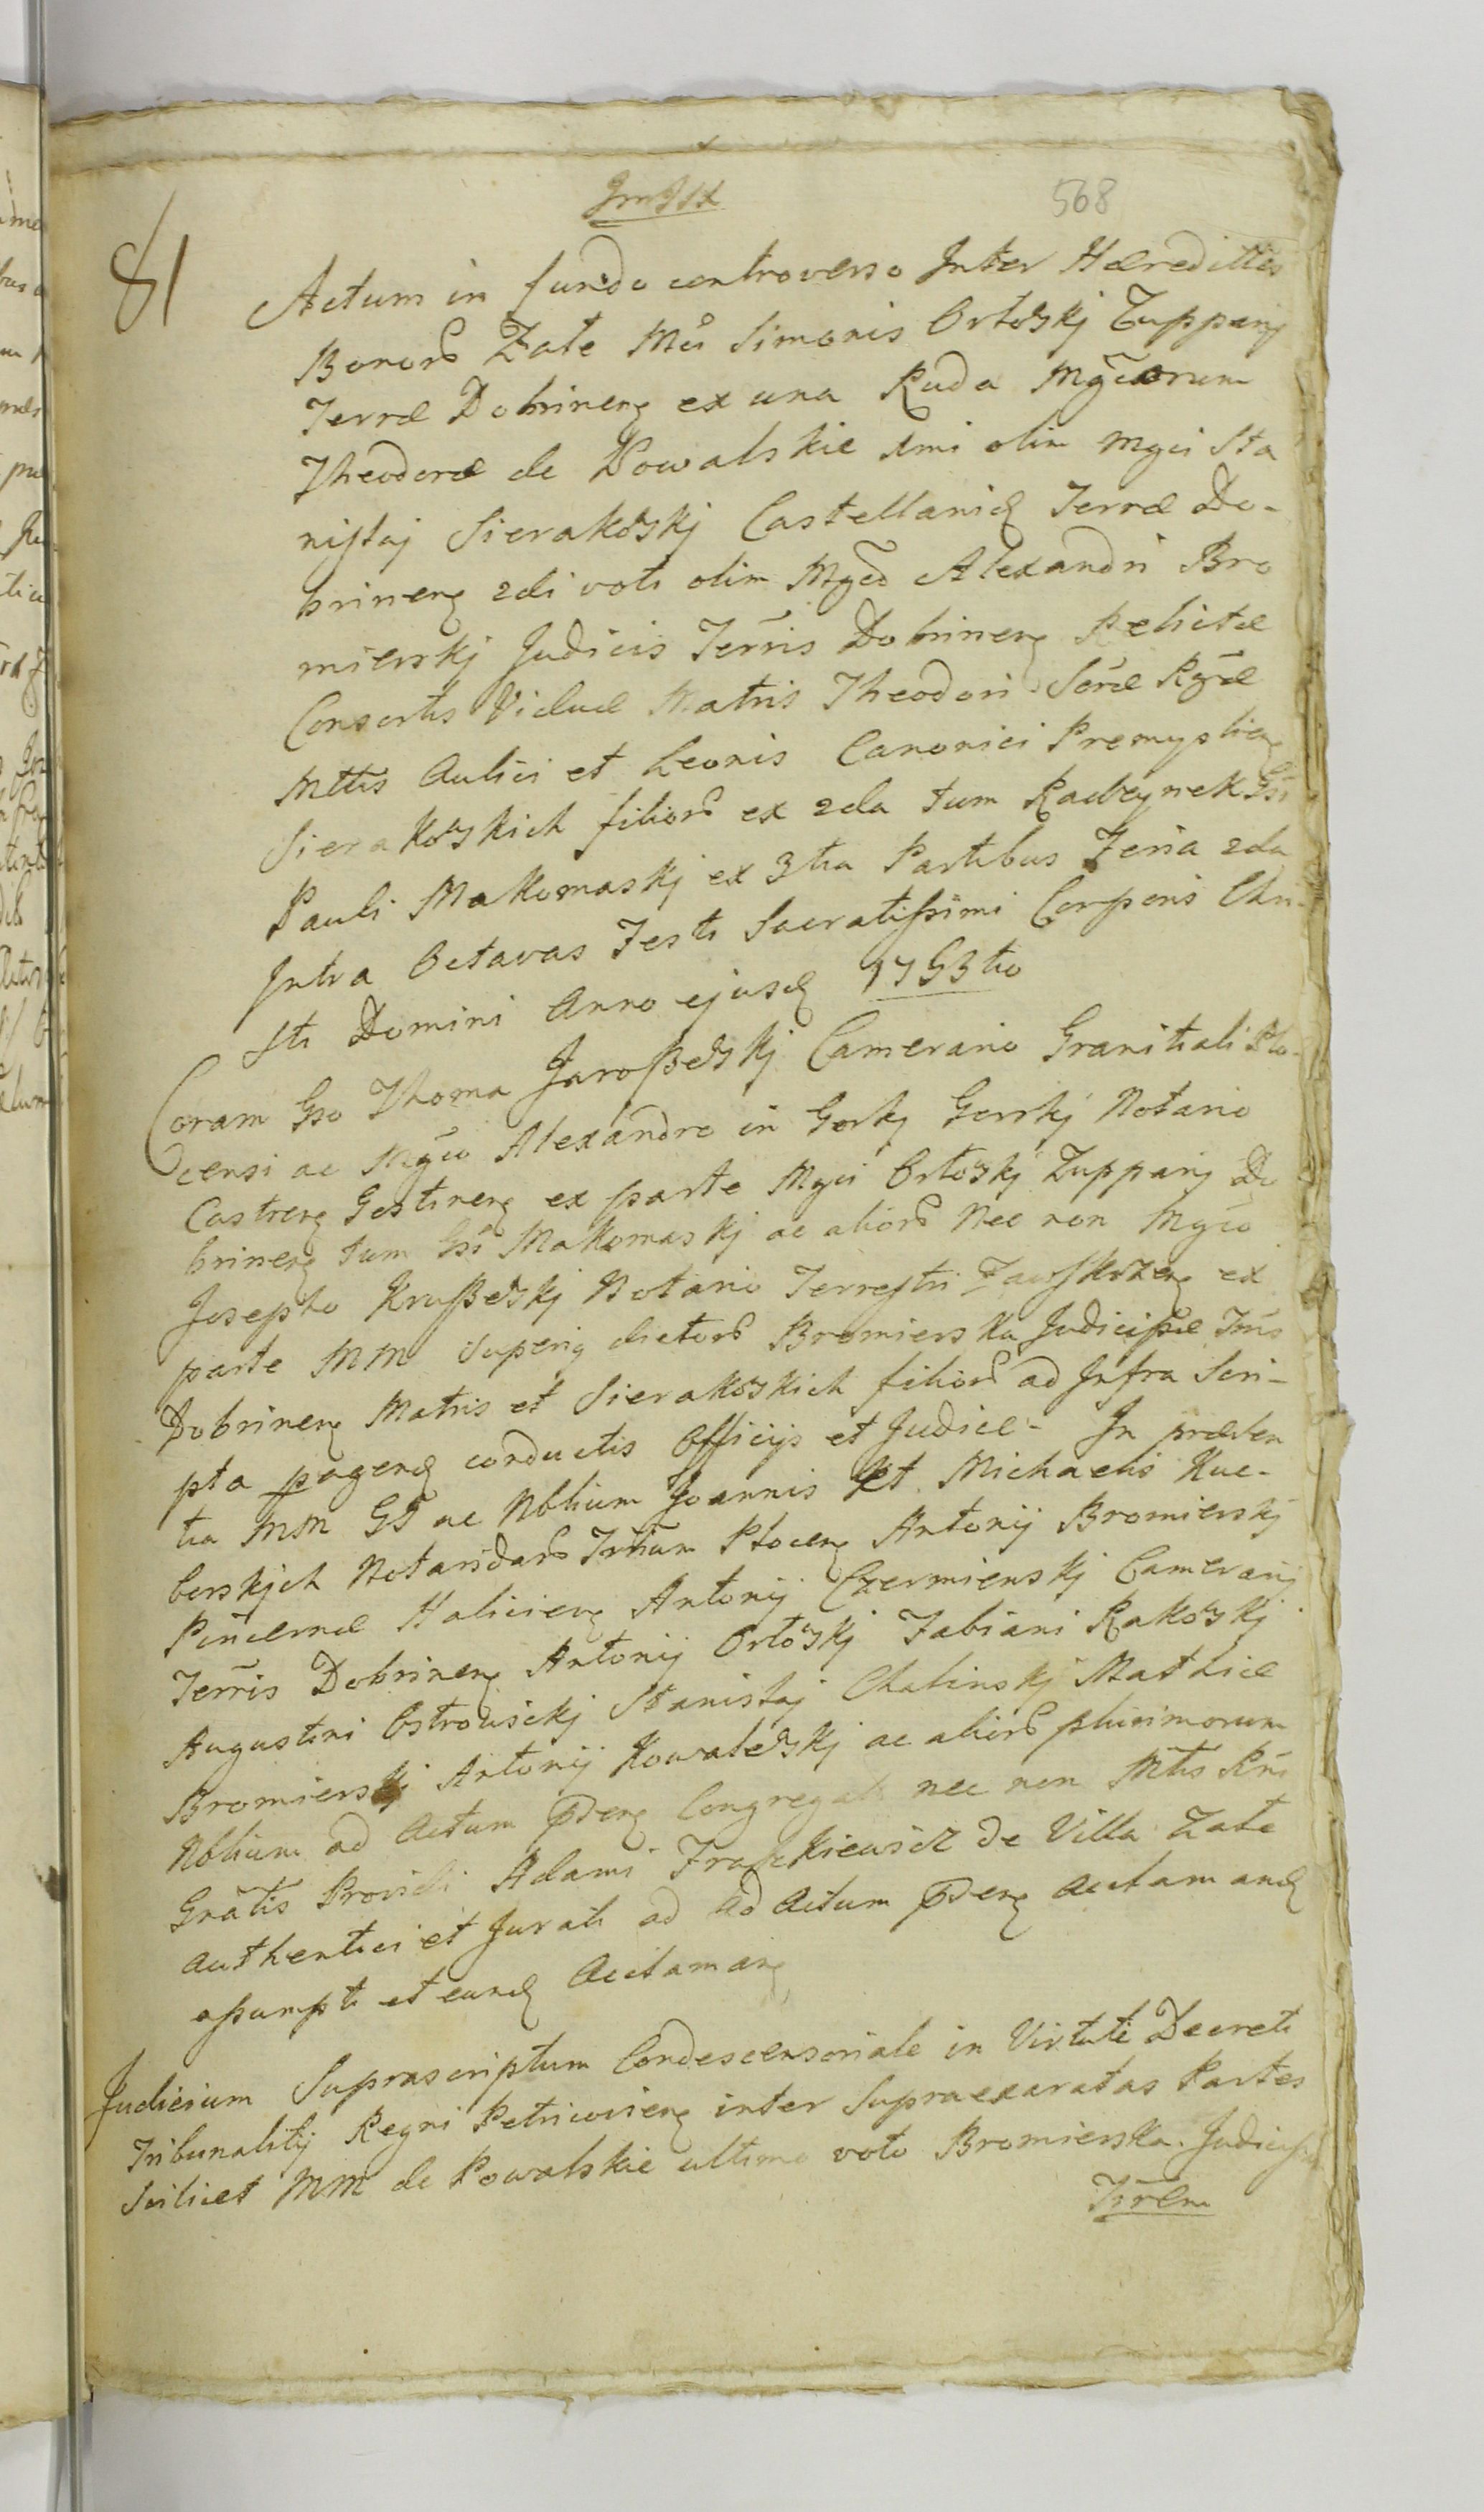 568
81
Actum in fundo controverso Inter Hæredittes
Bonor Zate Mci Simonis Ortoskj Zuppanj
Terræ Dobrinen ex una Ruda Mgcorum
Theodoræ de Kowalskie 1mi olim Mgci Sta
nislaj Sierakowskj Castellanid Terræ Do-
brinen 2di voti olim Mgcd Alexandri Bro
mierskj Judicis Terris Dobrinen Relictæ
Consortis Viduæ Matris Theodori Seræ Rgiæ
Mttis Aulici et Leonis Canonici Premyslien
Sierakowskich filior ex 2da tum Radzynek Gsi
Pauli Makomaskj ex 3tia Partibus Feria 2da
Intra Octavas Festi Sacratissimi Corporis Chri-
sti Domini Anno ejusd 1753tio
Coram Gso Thoma Jaroszewskj Camerario Granitiali Plo-
censi ac Mgco Alexandro in Gorkj Gorskj Notario
Castren Gostinen ex parte Mgci Ortowskj Zuppanj Do
brinen tum Gsi Makomaskj ac alior Nec non Mgco
Josepho Kruszewskj Notario Terrestri Zawskrzen ex
parte MM superiq dictor Bromierska Judicissæ Trris
Dobrinen Matris et Sierakowskich filior ad Infra Scri-
pta pagend conductis Officijs et Judice- In præsen
tia MM GG ac Nblium Joannis et Michaelis Kuc-
borskich Notaridar Trrium Plocen Antonij Bromierskj
Pincernæ Halicien Antonij Czermienskj Cameranj
Terris Dobrinen Antonij Ortowskj Fabiani Rakowskj
Augustini Ostrowickj Stanislaj Chalinskj Mathiæ
Bromierskj Antonij Kowalewskj ac alior plurimorum
Nblium ad Actum pden Congregati nec non Mtis Rni
Gratis Providi Adami Frackiewicz de Villa Zate
authentici et Jurati ad ad Actum pden aclamand
assumpti et eund Acclaman
Judicium Suprascriptum Condescensoriale in Virtute Decreti
Tribunalitij Regni Petricovien inter Supraexaratas Partes
Scilicet MM de Kowalskie ultimo voto Bromierska Judicissa
Trrem